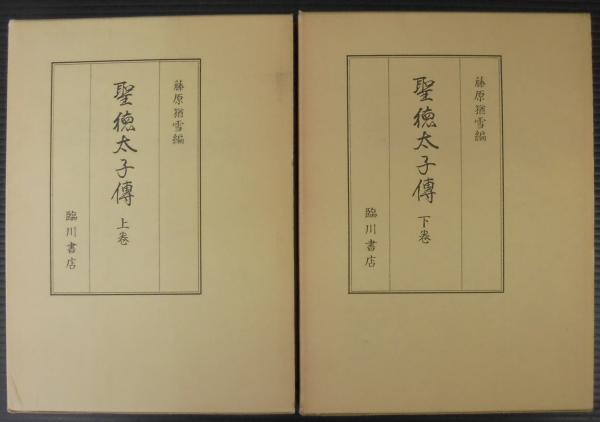 藤原猶雪編
聖徳太子傳 上卷
臨川書店
藤原猶雪編
聖徳太子傳 下卷
臨川書店